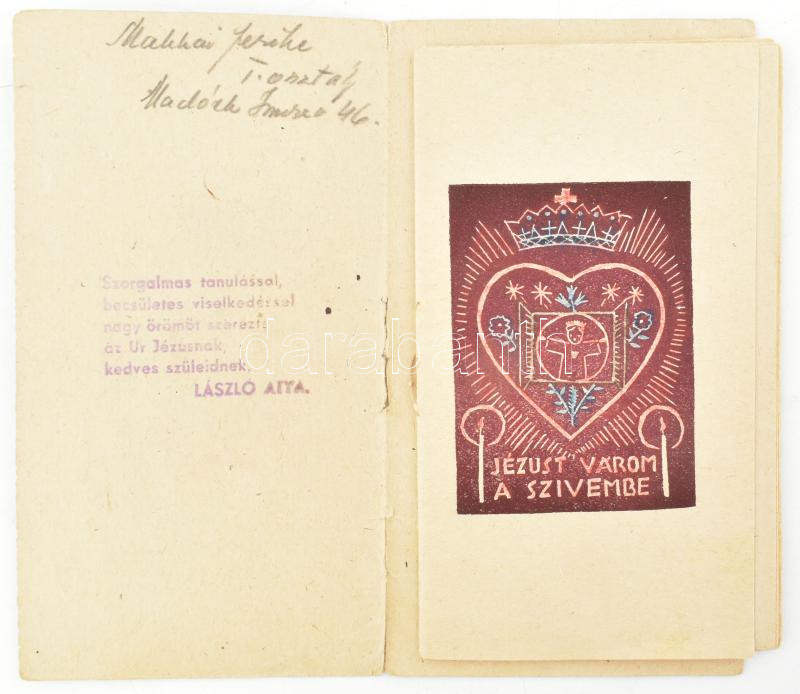 Makkai Ferike
I. osztály
Madách Imre u 46.
Szorgalmas tanulással,
becsületes viselkedéssel
nagy örömöt szerezts
az Ur Jézusnak,
kedves szüleidnek,
LÁSZLÓ ATYA.
JÉZUST VÁROM
A SZIVEMBE
darabanth